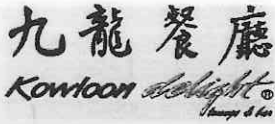 九龍餐廳
Kowloon delight®
lounge & bar